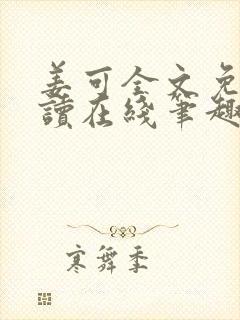 姜可全文免
讀在綫筆趣
寒舞季